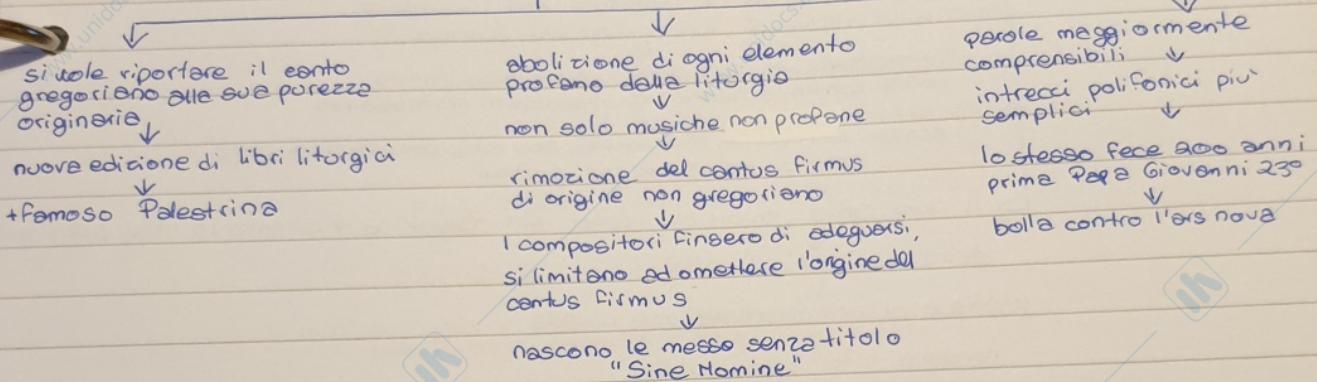 si vuole riportare il canto
gregoriano alla sua purezza
originaria
nuova edizione di libri liturgici
+famoso Palestrina
abolizione di ogni elemento
profano dalla liturgia
non solo musiche non profane
rimozione del cantus firmus
di origine non gregoriano
I compositori finsero di adeguarsi,
si limitano ad omettere l'origine del
cantus firmus
nascono le messe senza titolo
"Sine Nomine"
parole maggiormente
comprensibili
intrecci polifonici più
semplici
lo stesso fece 200 anni
prima Papa Giovanni 23°
bolla contro l'ars nova